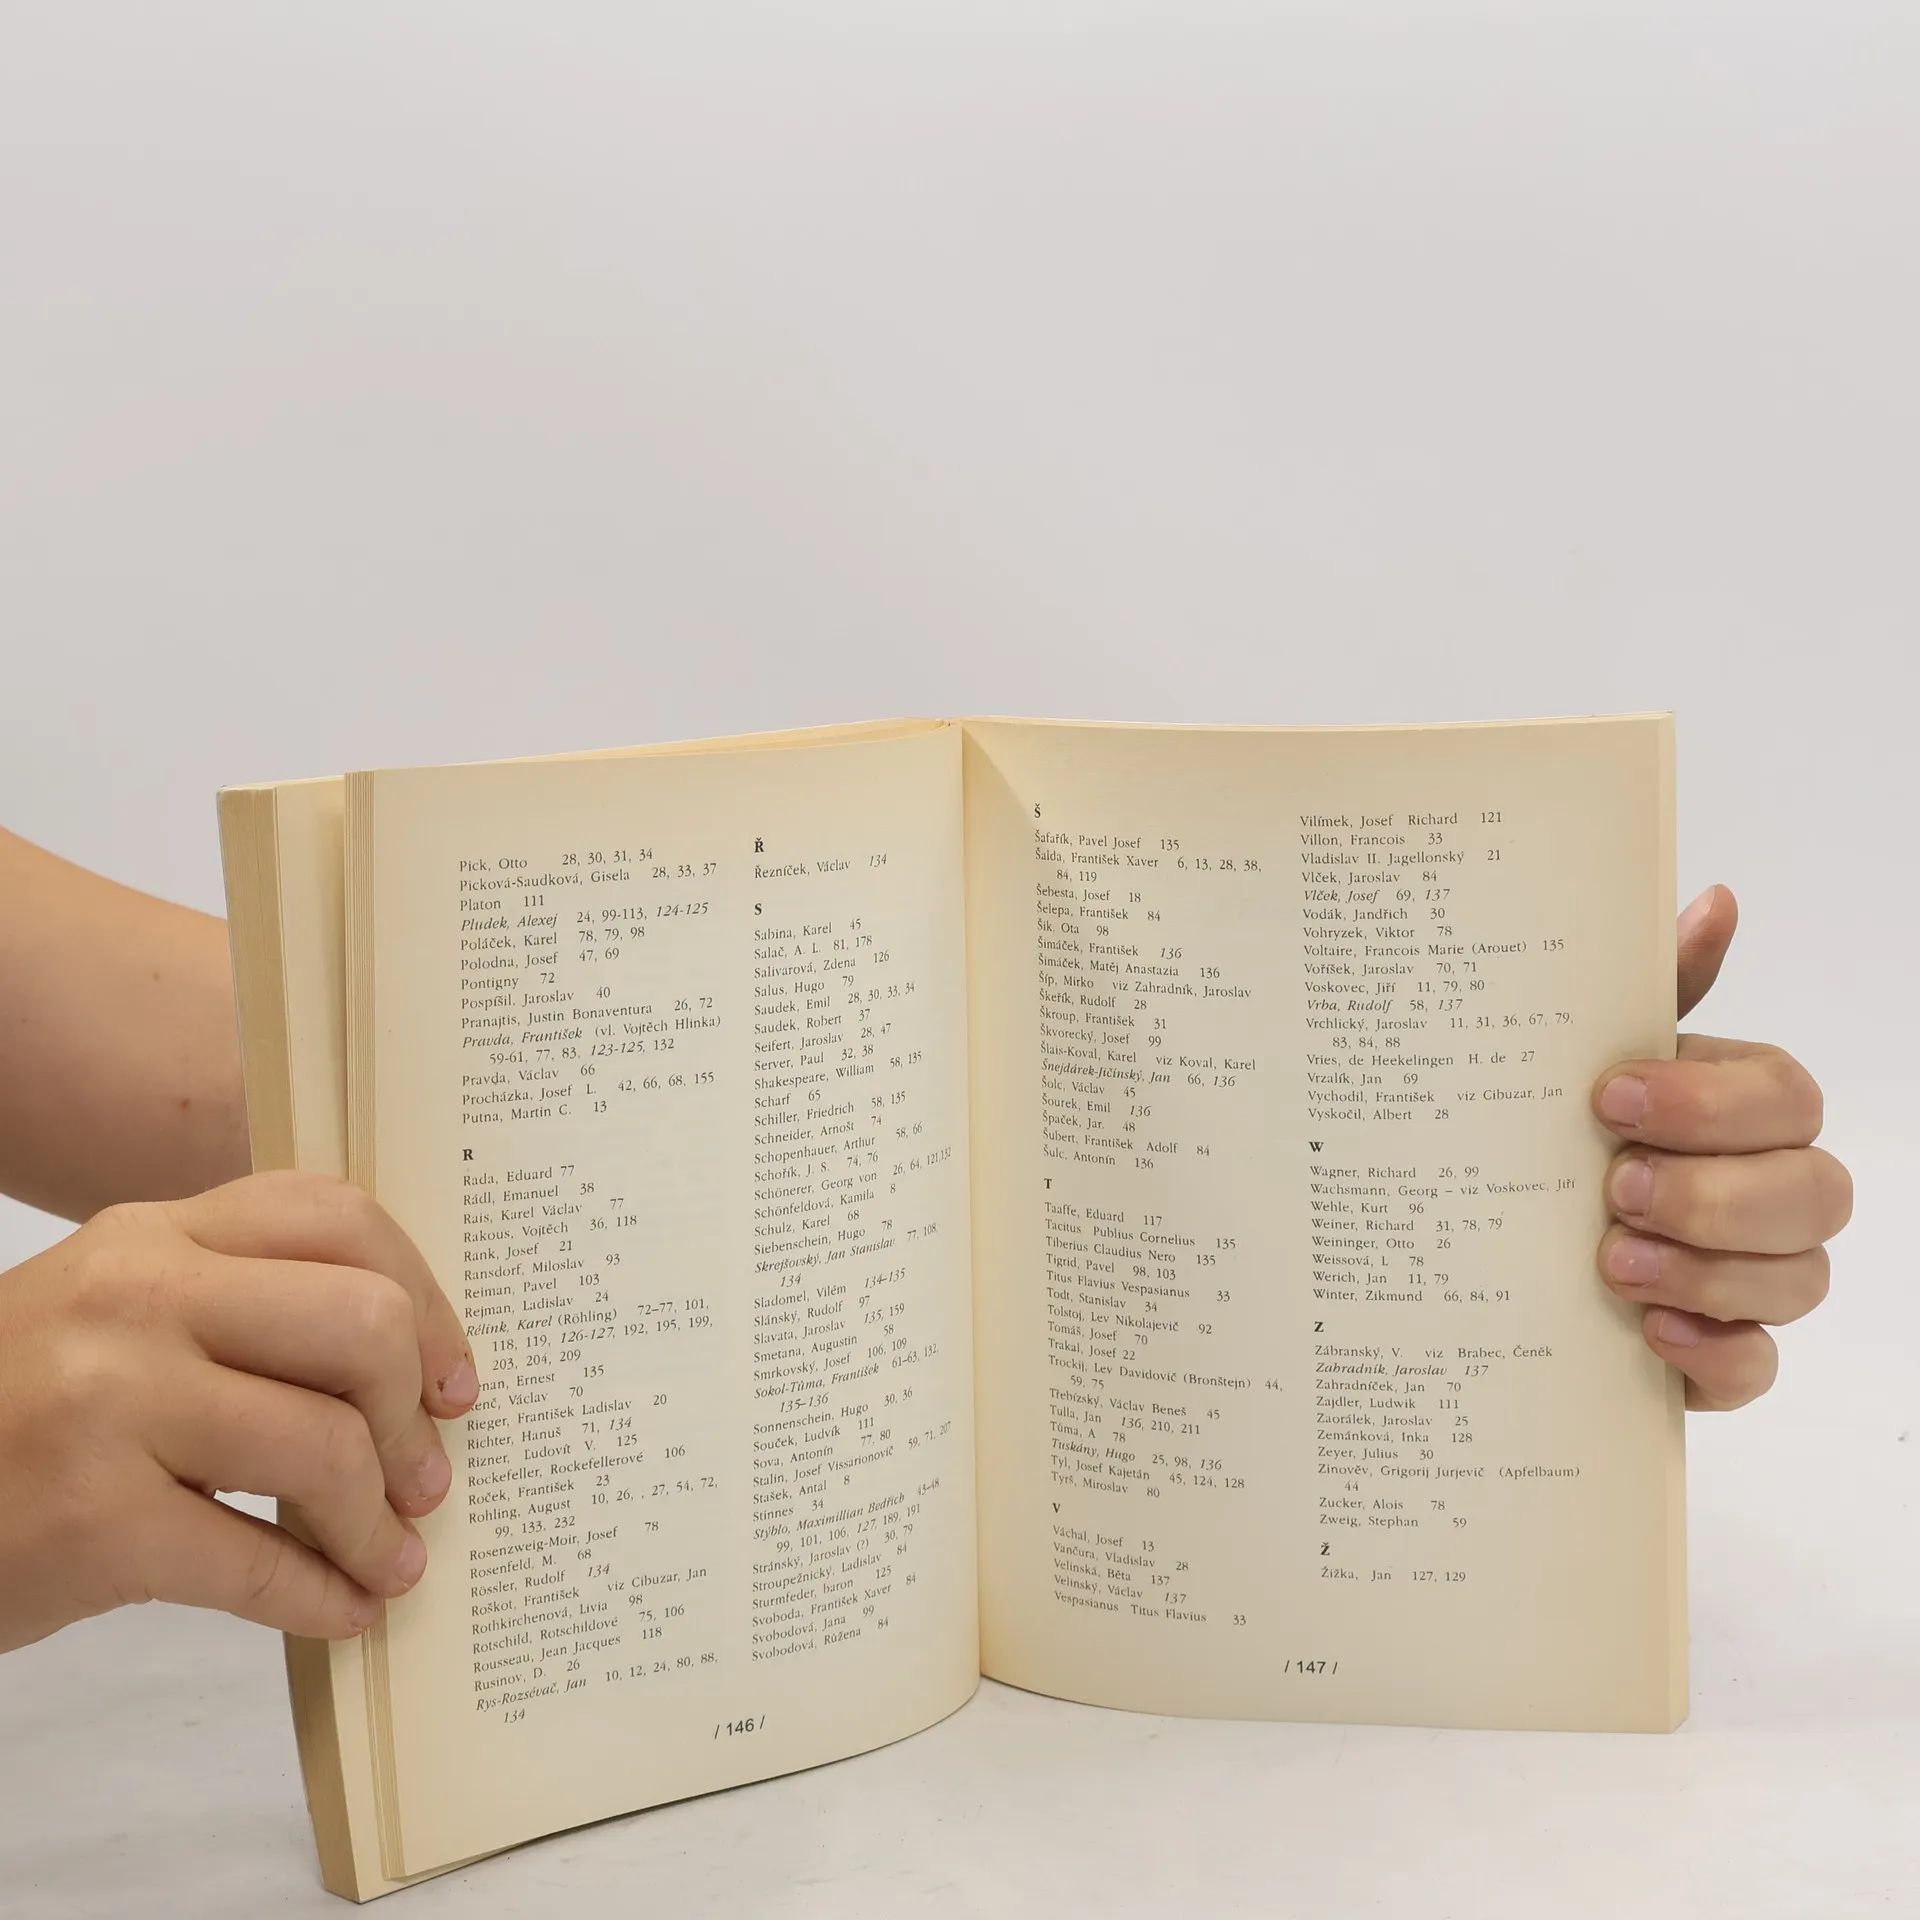 Pick, Otto 28, 30, 31, 34
Picková-Saudková, Gisela 28, 33, 37
Platon 111
Pludek, Alexej 24, 99-113, 124-125
Poláček, Karel 78, 79, 98
Polodna, Josef 47, 69
Pontigny 72
Pospíšil, Jaroslav 40
Pranajtis, Justin Bonaventura 26, 72
Pravda, František (vl. Vojtěch Hlinka)
59-61, 77, 83, 123-125, 132
Pravda, Václav 66
Procházka, Josef L. 42, 66, 68, 155
Putna, Martin C. 13
R
Rada, Eduard 77
Rádl, Emanuel 38
Rais, Karel Václav 77
Rakous, Vojtěch 36, 118
Rank, Josef 21
Ransdorf, Miloslav 93
Reiman, Pavel 103
Rejman, Ladislav 24
Rélink, Karel (Röhling) 72-77, 101,
118, 119, 126-127, 192, 195, 199,
203, 204, 209
enan, Ernest 135
enč, Václav 70
Rieger, František Ladislav 20
Richter, Hanuš 71, 134
Rizner, Ľudovít V. 125
Rockefeller, Rockefellerové 106
Roček, František 23
Rohling, August 10, 26, , 27, 54, 72,
99, 133, 232
Rosenzweig-Moir, Josef 78
Rosenfeld, M. 68
Rössler, Rudolf 134
Roškot, František viz Cibuzar, Jan
Rothkirchenová, Livia 98
Rotschild, Rotschildové 75, 106
Rousseau, Jean Jacques 118
Rusinov, D. 26
Rys-Rozsévač, Jan 10, 12, 24, 80, 88,
134
Ř
Řezníček, Václav 134
S
Sabina, Karel 45
Salač, A. L. 81, 178
Salivarová, Zdena 126
Salus, Hugo 79
Saudek, Emil 28, 30, 33, 34
Saudek, Robert 37
Seifert, Jaroslav 28, 47
Server, Paul 32, 38
Shakespeare, William 58, 135
Scharf 65
Schiller, Friedrich 58, 135
Schneider, Arnošt 74
Schopenhauer, Arthur 58, 66
Schořík, J. S. 74, 76
Schönerer, Georg von 26, 64, 121,132
Schönfeldová, Kamila 8
Schulz, Karel 68
Siebenschein, Hugo 78
Skrejšovský, Jan Stanislav 77, 108,
134
Sladomel, Vilém 134-135
Slánský, Rudolf 97
Slavata, Jaroslav 135, 159
Smetana, Augustin 58
Smrkovský, Josef 106, 109
Sokol-Tůma, František 61-63, 132,
135-136
Sonnenschein, Hugo 30, 36
Souček, Ludvík 111
Sova, Antonín 77, 80
Stalin, Josef Vissarionovič 59, 71, 207
Stašek, Antal 8
Stinnes 34
Stýblo, Maximillian Bedřich 43-48,
99, 101, 106, 127, 189, 191
Stránský, Jaroslav (?) 30, 79
Stroupežnický, Ladislav 84
Sturmfeder, baron 125
Svoboda, František Xaver 84
Svobodová, Jana 99
Svobodová, Růžena 84
/ 146 /
Š
Šafařík, Pavel Josef 135
Šalda, František Xaver 6, 13, 28, 38,
84, 119
Šebesta, Josef 18
Šelepa, František 84
Šik, Ota 98
Šimáček, František 136
Šimáček, Matěj Anastazia 136
Šíp, Mirko viz Zahradník, Jaroslav
Škeřík, Rudolf 28
Škroup, František 31
Škvorecký, Josef 99
Šlais-Koval, Karel viz Koval, Karel
Šnejdárek-Jičínský, Jan 66, 136
Šolc, Václav 45
Šourek, Emil 136
Špaček, Jar. 48
Šubert, František Adolf 84
Šulc, Antonín 136
T
Taaffe, Eduard 117
Tacitus Publius Cornelius 135
Tiberius Claudius Nero 135
Tigrid, Pavel 98, 103
Titus Flavius Vespasianus 33
Todt, Stanislav 34
Tolstoj, Lev Nikolajevič 92
Tomáš, Josef 70
Trakal, Josef 22
Trockij, Lev Davidovič (Bronštejn) 44,
59, 75
Třebízský, Václav Beneš 45
Tulla, Jan 136, 210, 211
Tůma, A 78
Tuskány, Hugo 25, 98, 136
Tyl, Josef Kajetán 45, 124, 128
Tyrš, Miroslav 80
V
Váchal, Josef 13
Vančura, Vladislav 28
Velinská, Běta 137
Velinský, Václav 137
Vespasianus Titus Flavius 33
Vilímek, Josef Richard 121
Villon, Francois 33
Vladislav II. Jagellonský 21
Vlček, Jaroslav 84
Vlček, Josef 69, 137
Vodák, Jandřich 30
Vohryzek, Viktor 78
Voltaire, Francois Marie (Arouet) 135
Voříšek, Jaroslav 70, 71
Voskovec, Jiří 11, 79, 80
Vrba, Rudolf 58, 137
Vrchlický, Jaroslav 11, 31, 36, 67, 79,
83, 84, 88
Vries, de Heekelingen H. de 27
Vrzalík, Jan 69
Vychodil, František viz Cibuzar, Jan
Vyskočil, Albert 28
W
Wagner, Richard 26, 99
Wachsmann, Georg – viz Voskovec, Jiří
Wehle, Kurt 96
Weiner, Richard 31, 78, 79
Weininger, Otto 26
Weissová, L 78
Werich, Jan 11, 79
Winter, Zikmund 66, 84, 91
Z
Zábranský, V. viz Brabec, Čeněk
Zahradník, Jaroslav 137
Zahradníček, Jan 70
Zajdler, Ludwik 111
Zaorálek, Jaroslav 25
Zemánková, Inka 128
Zeyer, Julius 30
Zinověv, Grigorij Jurjevič (Apfelbaum)
44
Zucker, Alois 78
Zweig, Stephan 59
Ž
Žižka, Jan 127, 129
/ 147 /